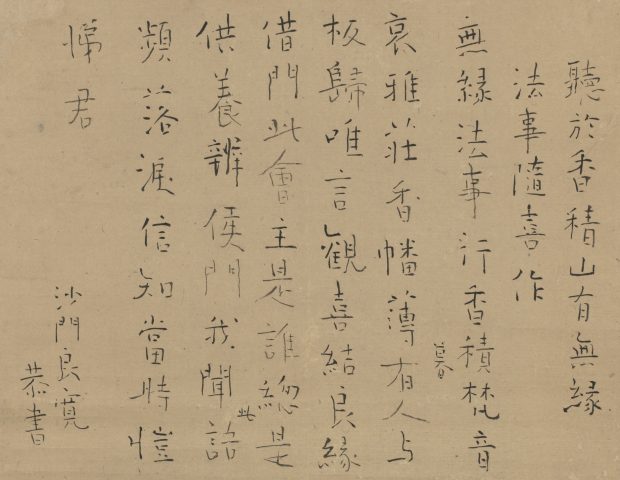 聽於香積山有無緣
法事隨喜作
無緣法事行香積梵音
哀雅莊香幡薄暮有人与
板歸唯言觀喜結良緣
借門此會主是誰緫是
供養辨侯門我聞此語
頻落淚信知當時愷
悌君
沙門良寛
恭書